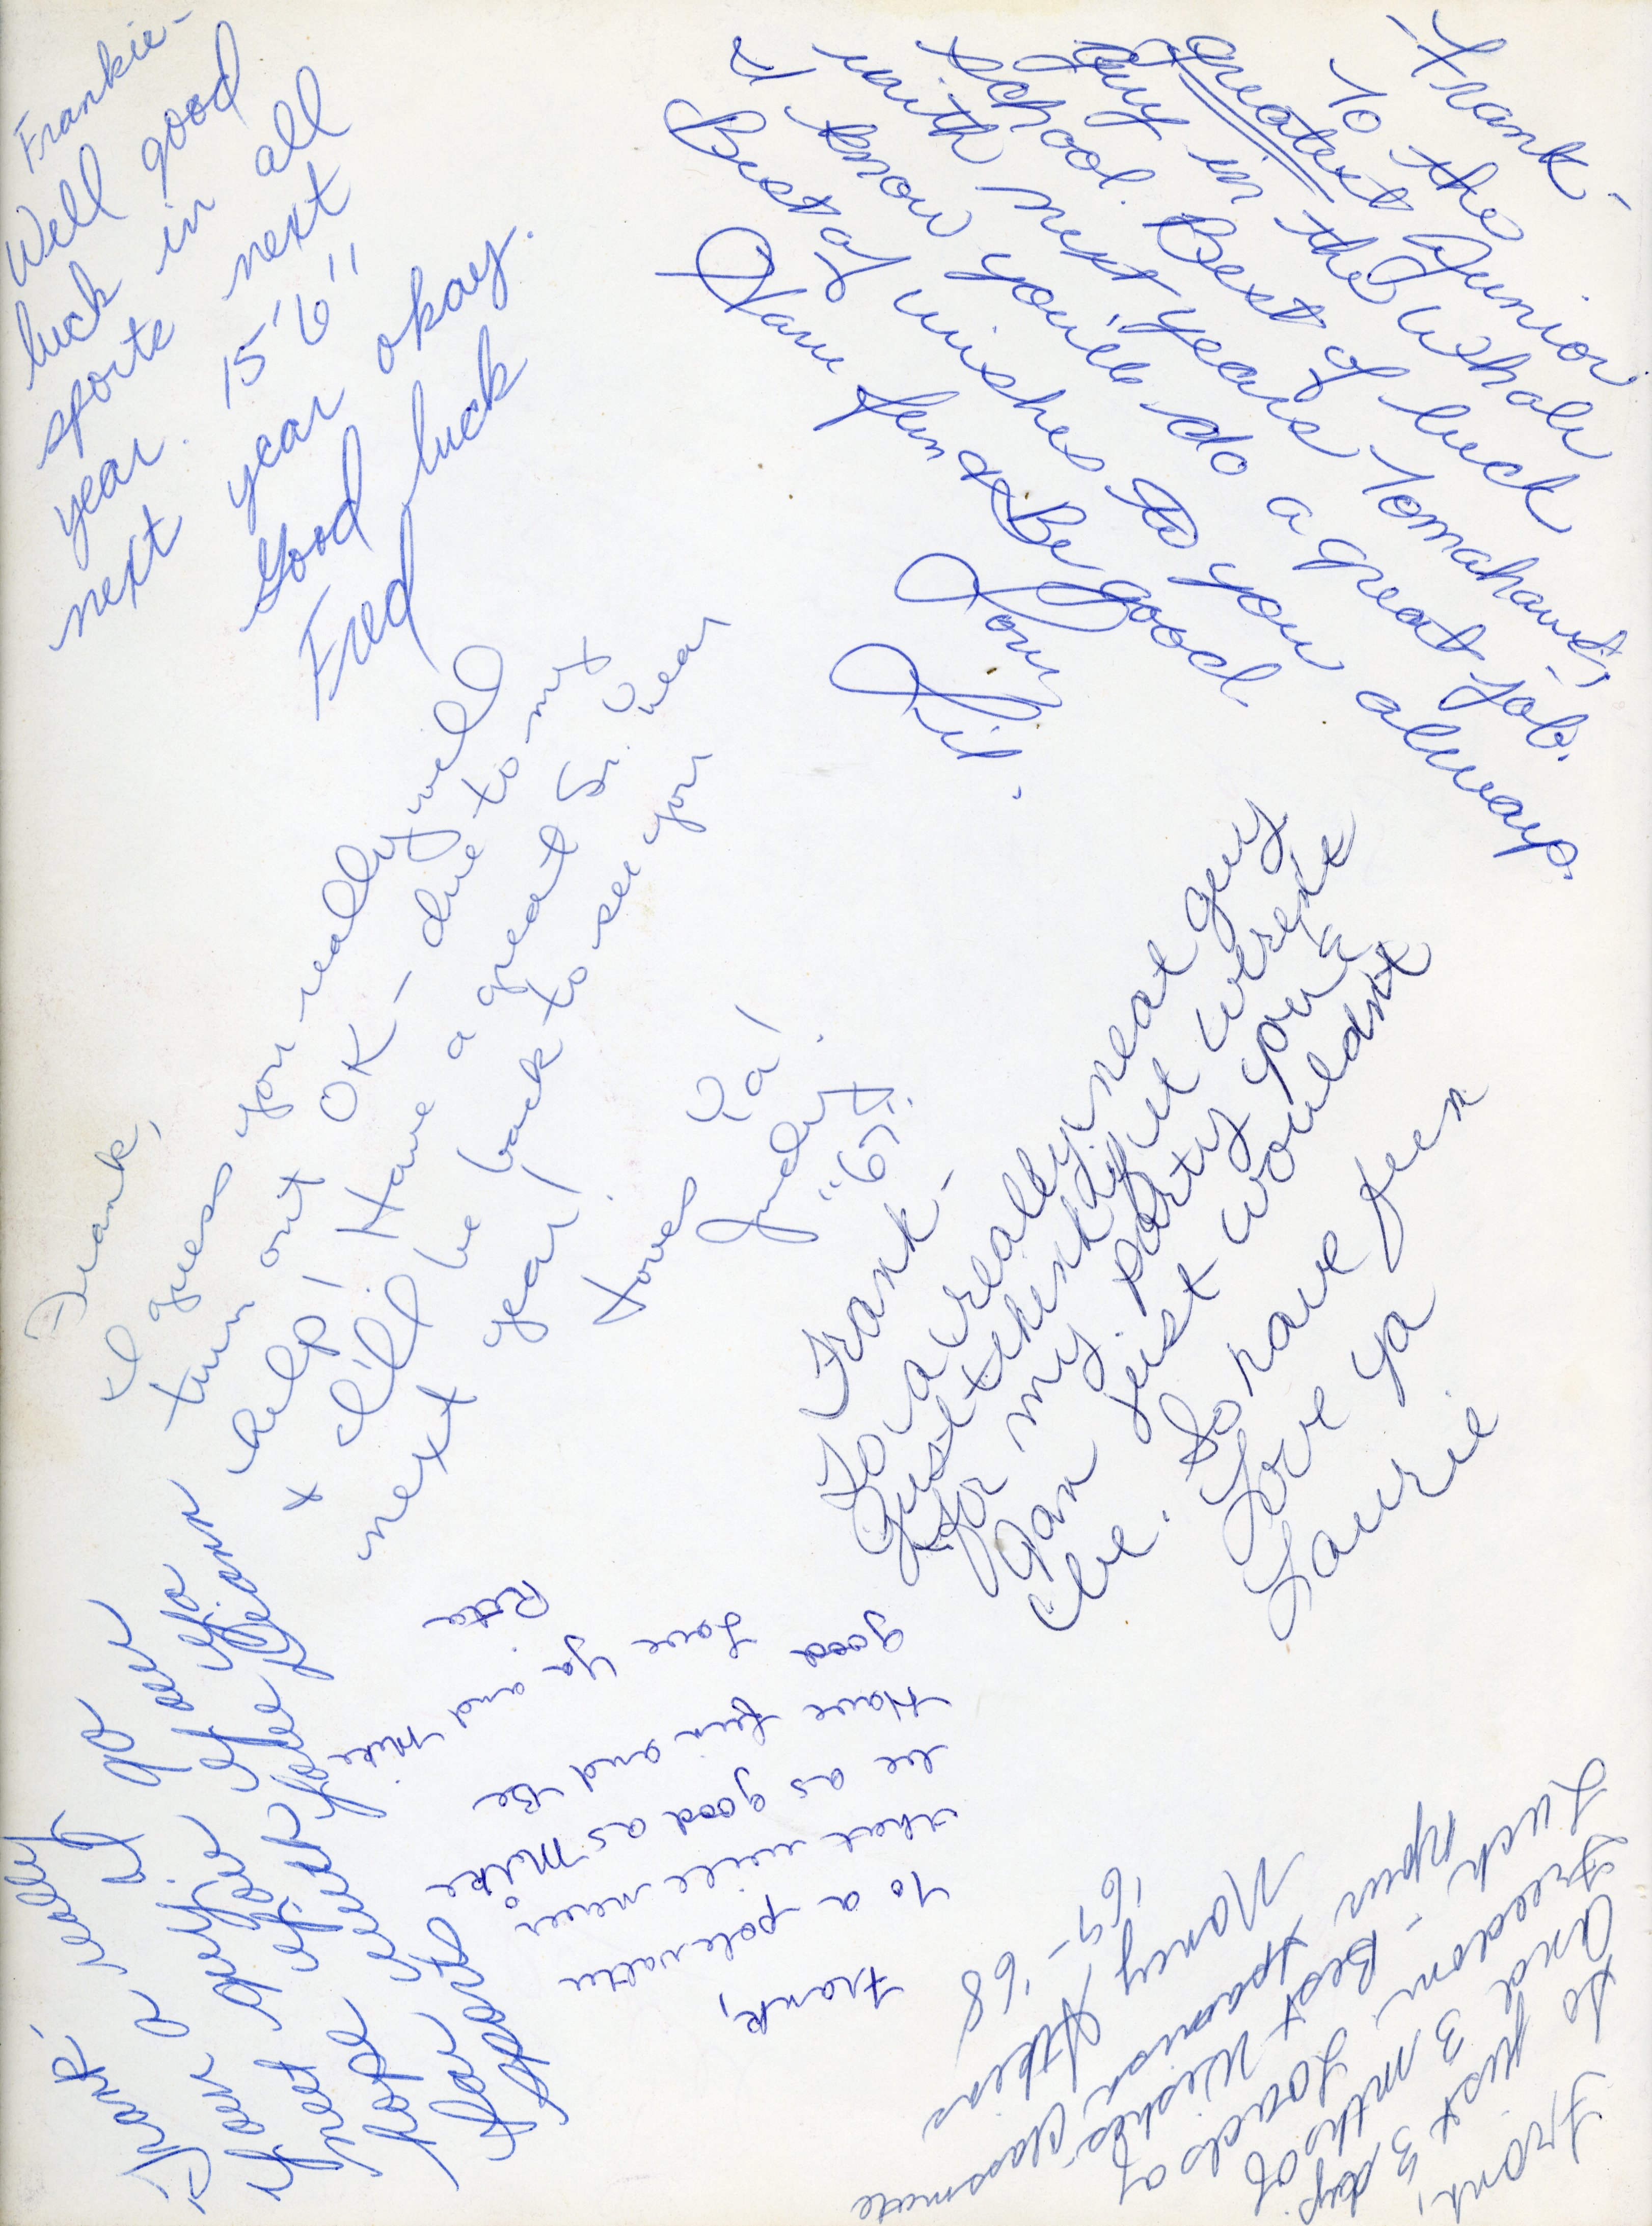 Frankie-
Well good
luck in all
sports next
year. 15'6"
next year okay.
Good luck
Fred
Frank-
To the
greatest Junior
guy in the whole
school. Best of luck
with next years Tomahawk,
I know you'll do a great job.
Best of wishes to you always.
Have fun & Be good.
Love
Lil.
Frank,
I guess you really will
turn out OK - due to my
help! Have a great Sr. year
+ I'll be back to see you
next year!
Loves Ya!
Judy
"67"
Frank-
To a really neat guy
just think if it weren't
for my party you &
Jan just wouldnt
be. So have fun
Love ya
Laurie
Frank-
Your a really
neat guy
hope your
for your
sports
Frank,
To a polevalter
that will never
be as good as Mike
Have fun and Be
good Love Ya
Mike and Rita
Frank,
To just 3 days
and 3 mths of
Freedom. Loads of
Luck - Best Wishes
your Spanish Classmate
Nancy
'67-'68